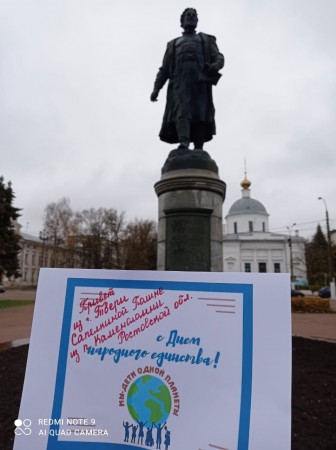 Привет
из г. Твери
Сапелкиной Полине
из г. Каменоломни
Ростовской обл.
с Днем
народного единства!
МЫ-ДЕТИ ОДНОЙ ПЛАНЕТЫ
REDMI NOTE 9
AI QUAD CAMERA